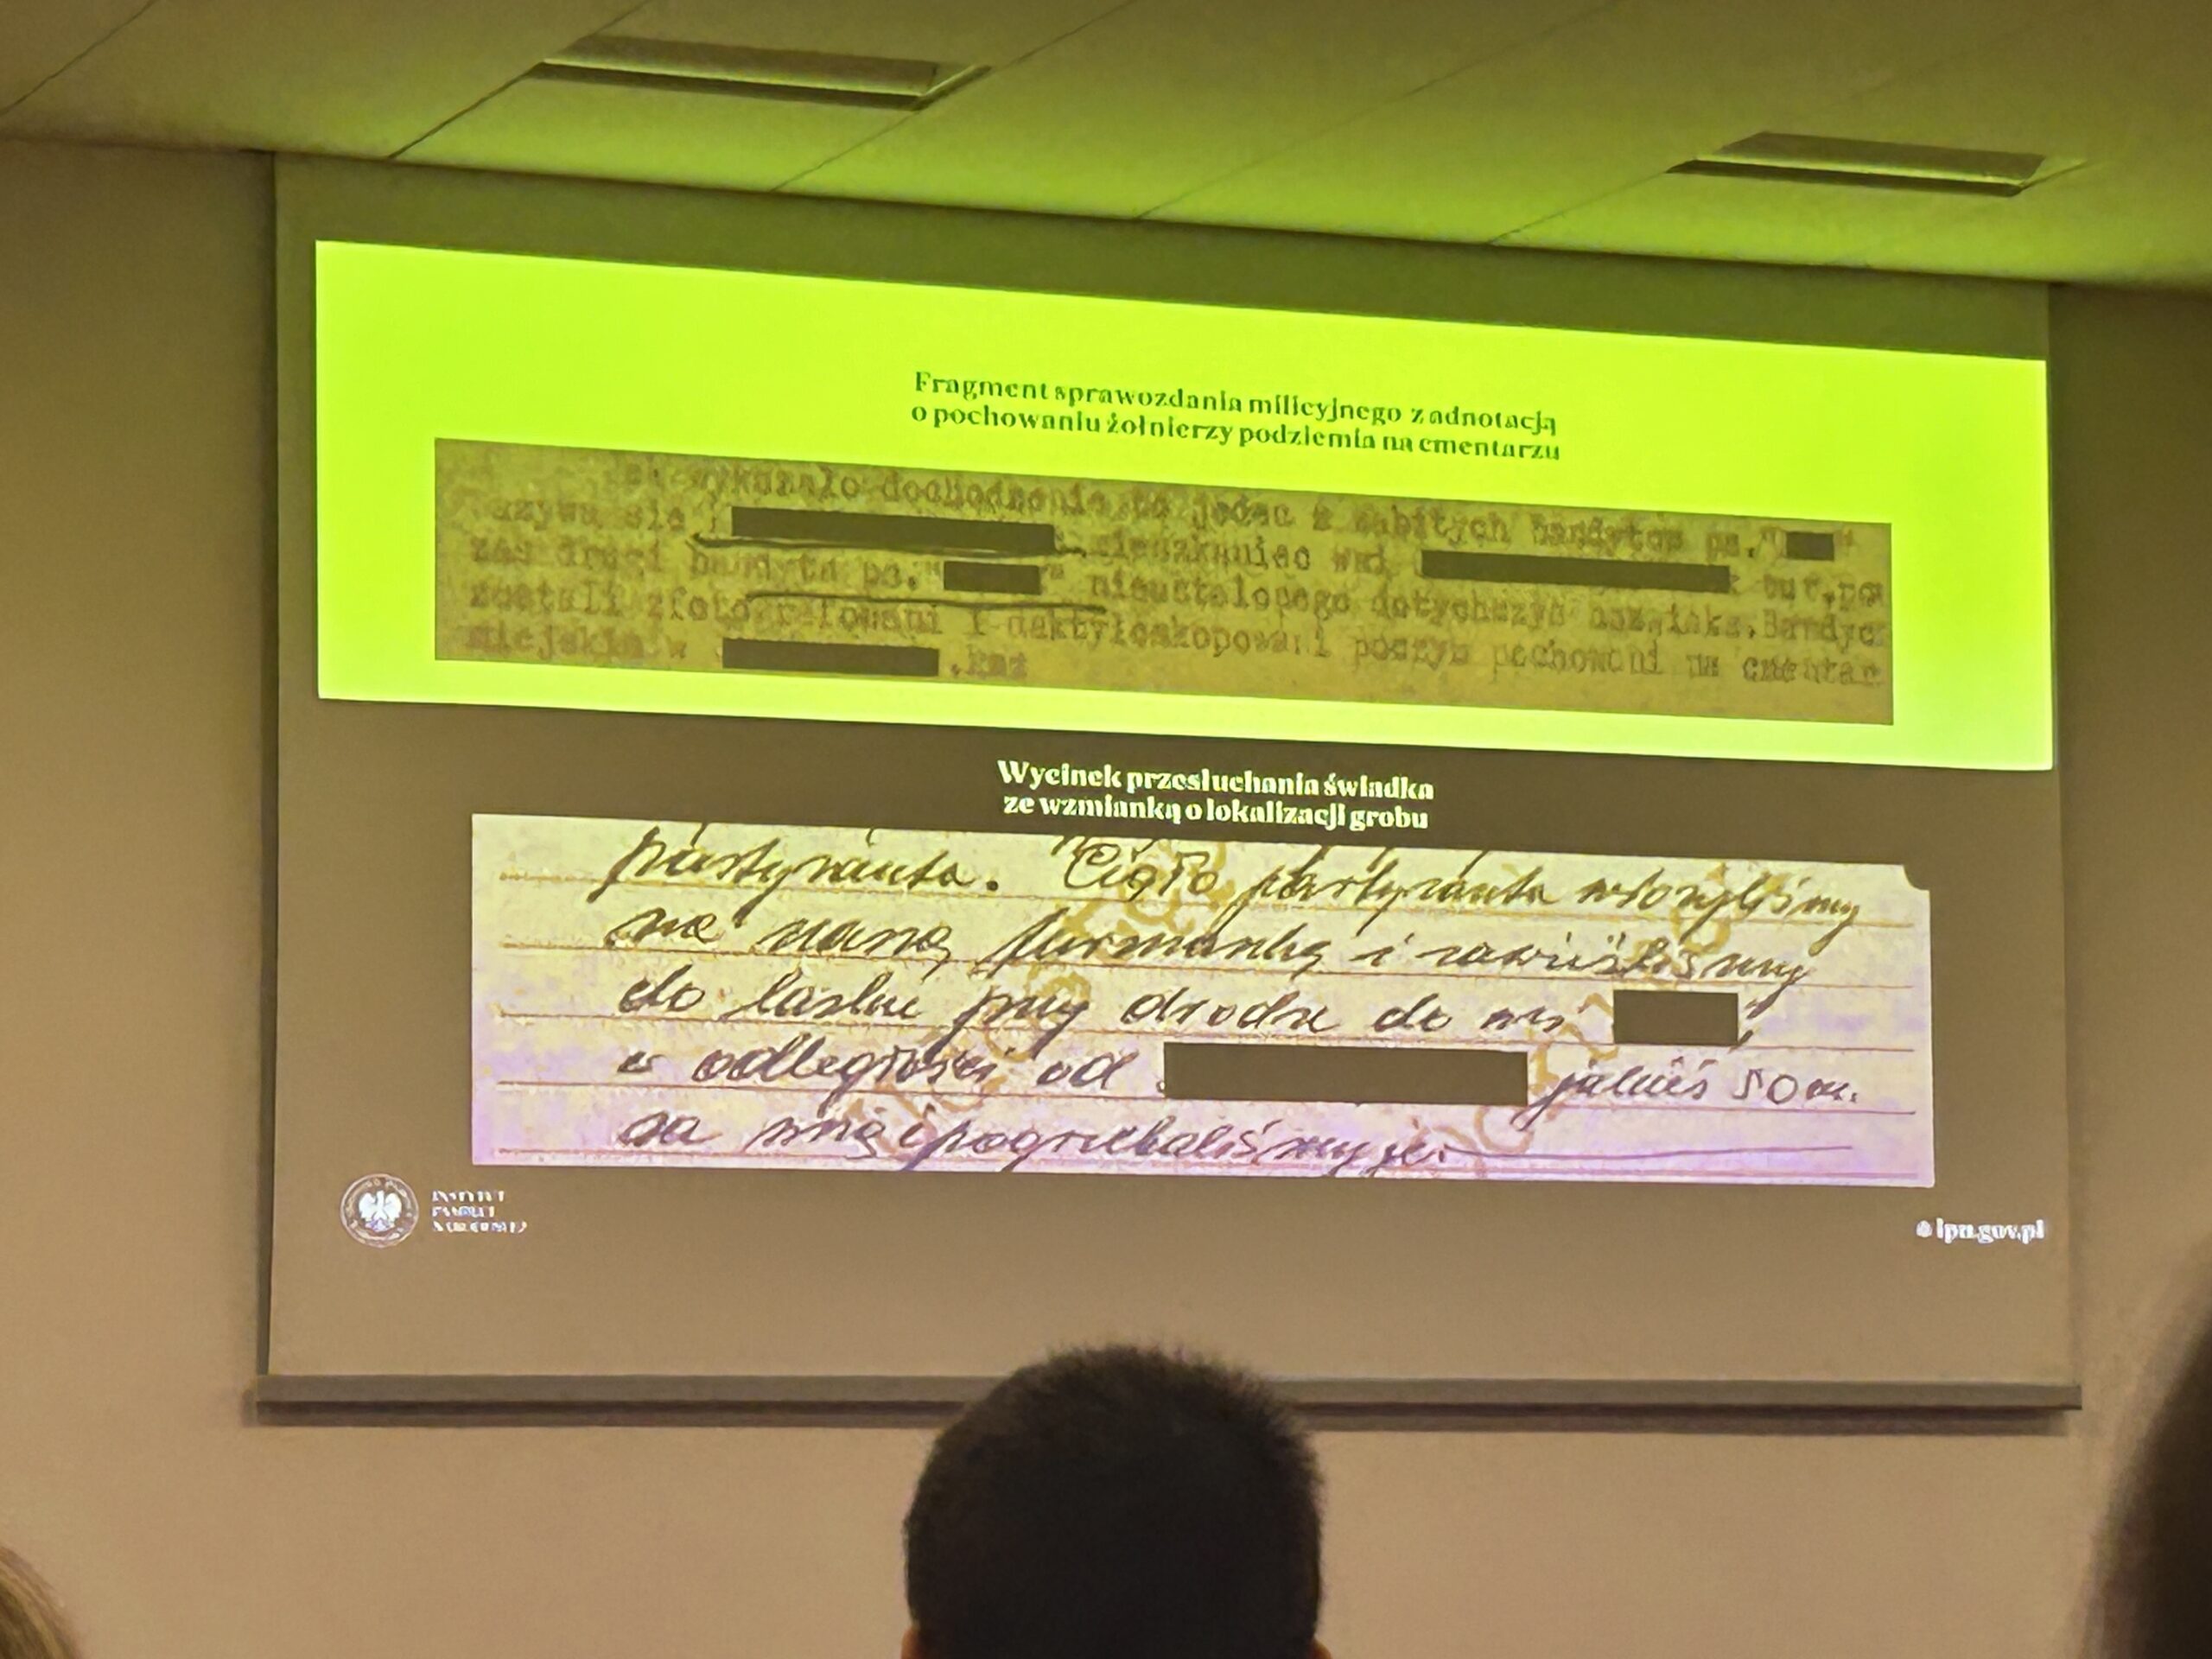 Fragment sprawozdania milicyjnego z adnotacją
o pochowaniu żołnierzy podziemia na cmentarzu
wykazało dochodzenie to jeden z zabitych bandytow ps."
nazywa się mieszkaniec wsi tut.po
zaś drugi bandyta ps." " nieustalonego dotychczys nazwiska.Bandyc
zostali zfotografowani i daktyloskopowani poczym pochowani na cmentar
miejskim w .Raz
Wycinek przesłuchania świadka
ze wzmianką o lokalizacji grobu
partyzanta. Ciało partyzanta włożyliśmy
na naszą furmankę i zawieźliśmy
do lasku przy drodze do wsi
w odległości od jakieś 50 m.
za wsią i pogrzebaliśmy je.
INSTYTUT
PAMIĘCI
NARODOWEJ
ipn.gov.pl